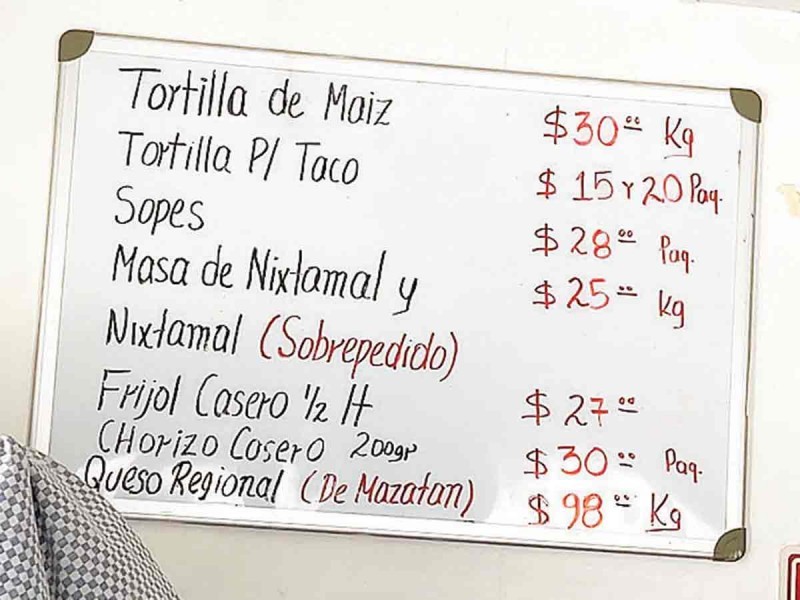 Tortilla de Maiz $30.00 Kg
Tortilla P/ Taco $ 15 Y 20 Paq.
Sopes $ 28.00 Paq.
Masa de Nixtamal y $ 25.00 Kg
Nixtamal (Sobrepedido)
Frijol Casero 1/2 lt $ 27.00
CHorizo Casero 200gr $ 30.00 Paq.
Queso Regional (De Mazatan) $ 98.00 Kg